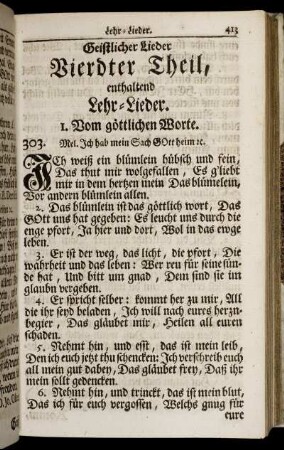 Lehr-Lieder. 413
Geistlicher Lieder
Vierdter Theil,
enthaltend
Lehr-Lieder.
1. Vom göttlichen Worte.
303. Mel. Ich hab mein Sach GOtt heim ꝛc.
ICh weiß ein blümlein hübsch und fein,
Das thut mir wolgefallen, Es g'liebt
mir in dem hertzen mein Das blümelein,
Vor andern blümlein allen.
2. Das blümlein ist das göttlich wort, Das
GOtt uns hat gegeben: Es leucht uns durch die
enge pfort, Ja hier und dort, Wol in das ewge
leben.
3. Er ist der weg, das licht, die pfort, Die
wahrheit und das leben: Wer reu für seine sün-
de hat, Und bitt um gnad, Dem sind sie im
glaubn vergeben.
4. Er spricht selber: kommt her zu mir, All
die ihr seyd beladen, Ich will nach eures hertzn-
begier, Das gläubet mir, Heilen all euren
schaden.
5. Nehmt hin, und esst, das ist mein leib,
Den ich euch jetzt thu schencken: Ich verschreib euch
all mein gut dabey, Das gläubet frey, Daß ihr
mein sollt gedencken.
6. Nehmt hin, und trinckt, das ist mein blut,
Das ich für euch vergossen, Welchs gnug für
eure